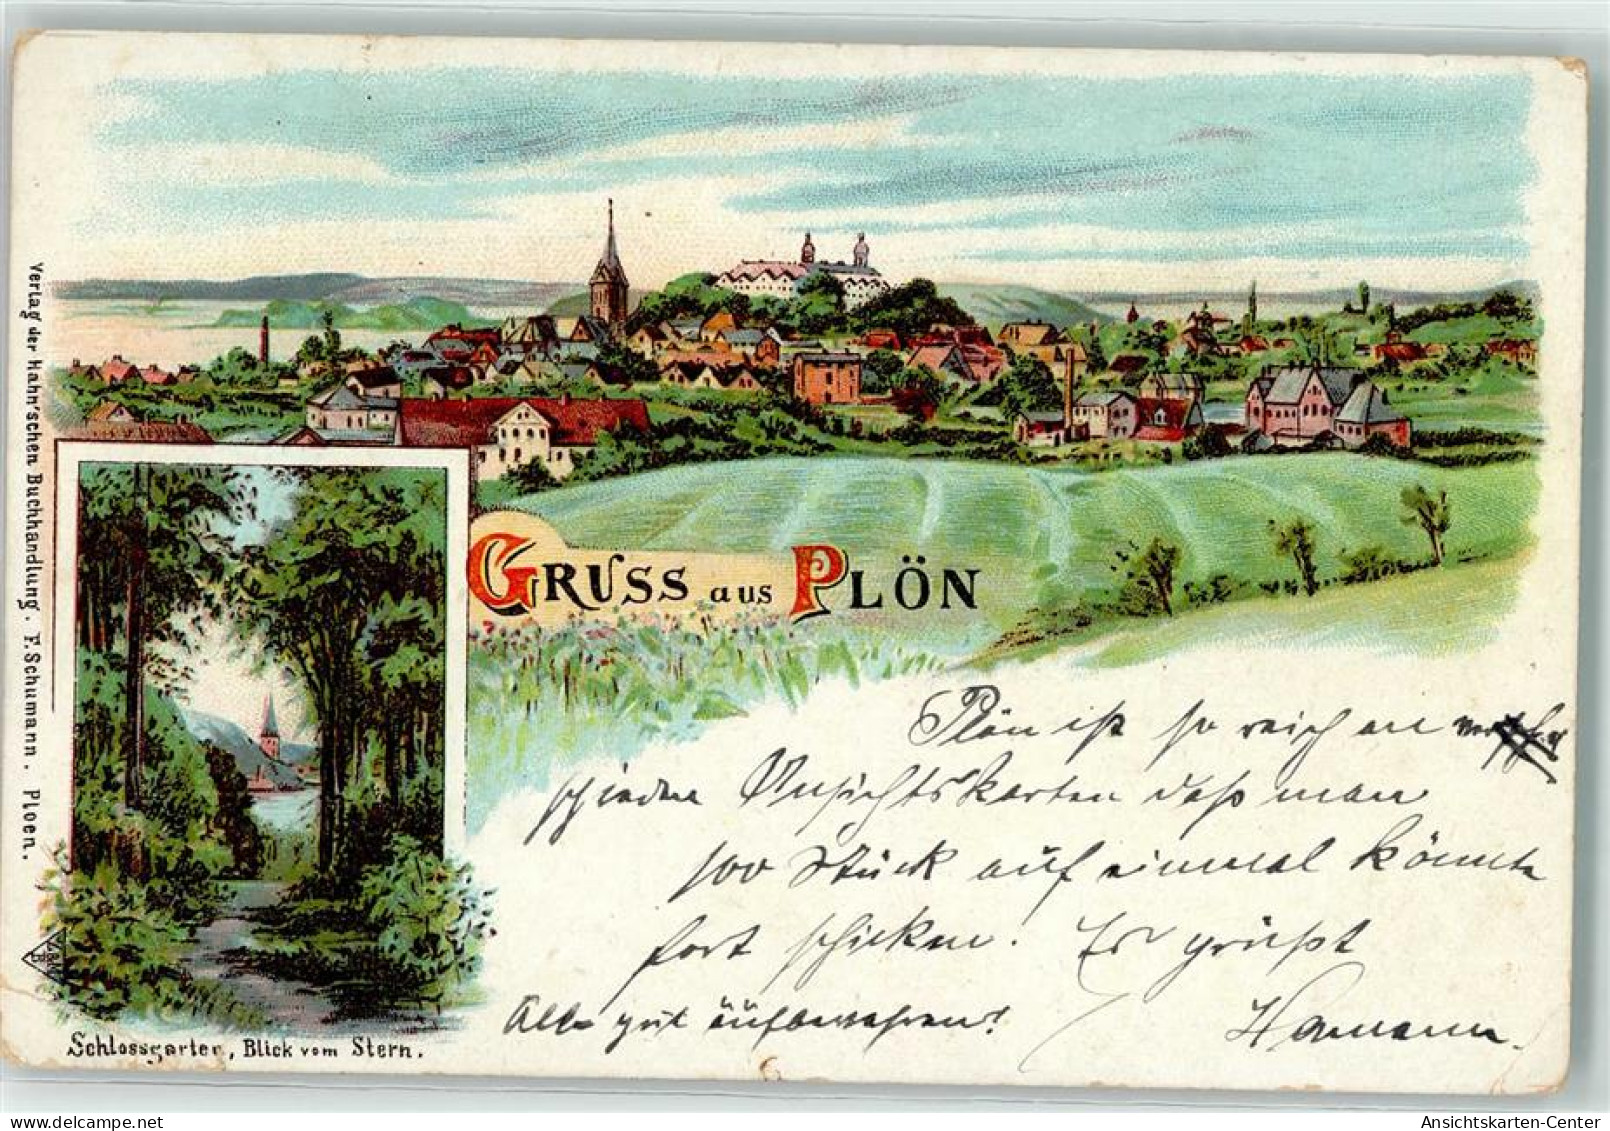 Verlag der Hahn'schen Buchhandlung. F. Schumann. Ploen.
GRUSS aus PLÖN
Plön ist so reich an
schiedene Ansichtskarten daß man
100 Stück auf einmal könnte
fort schicken. Es grüßt
Alles gut aufbewahren! Hermann.
Schlossgarten, Blick vom Stern.
Ansichtskarten-Center